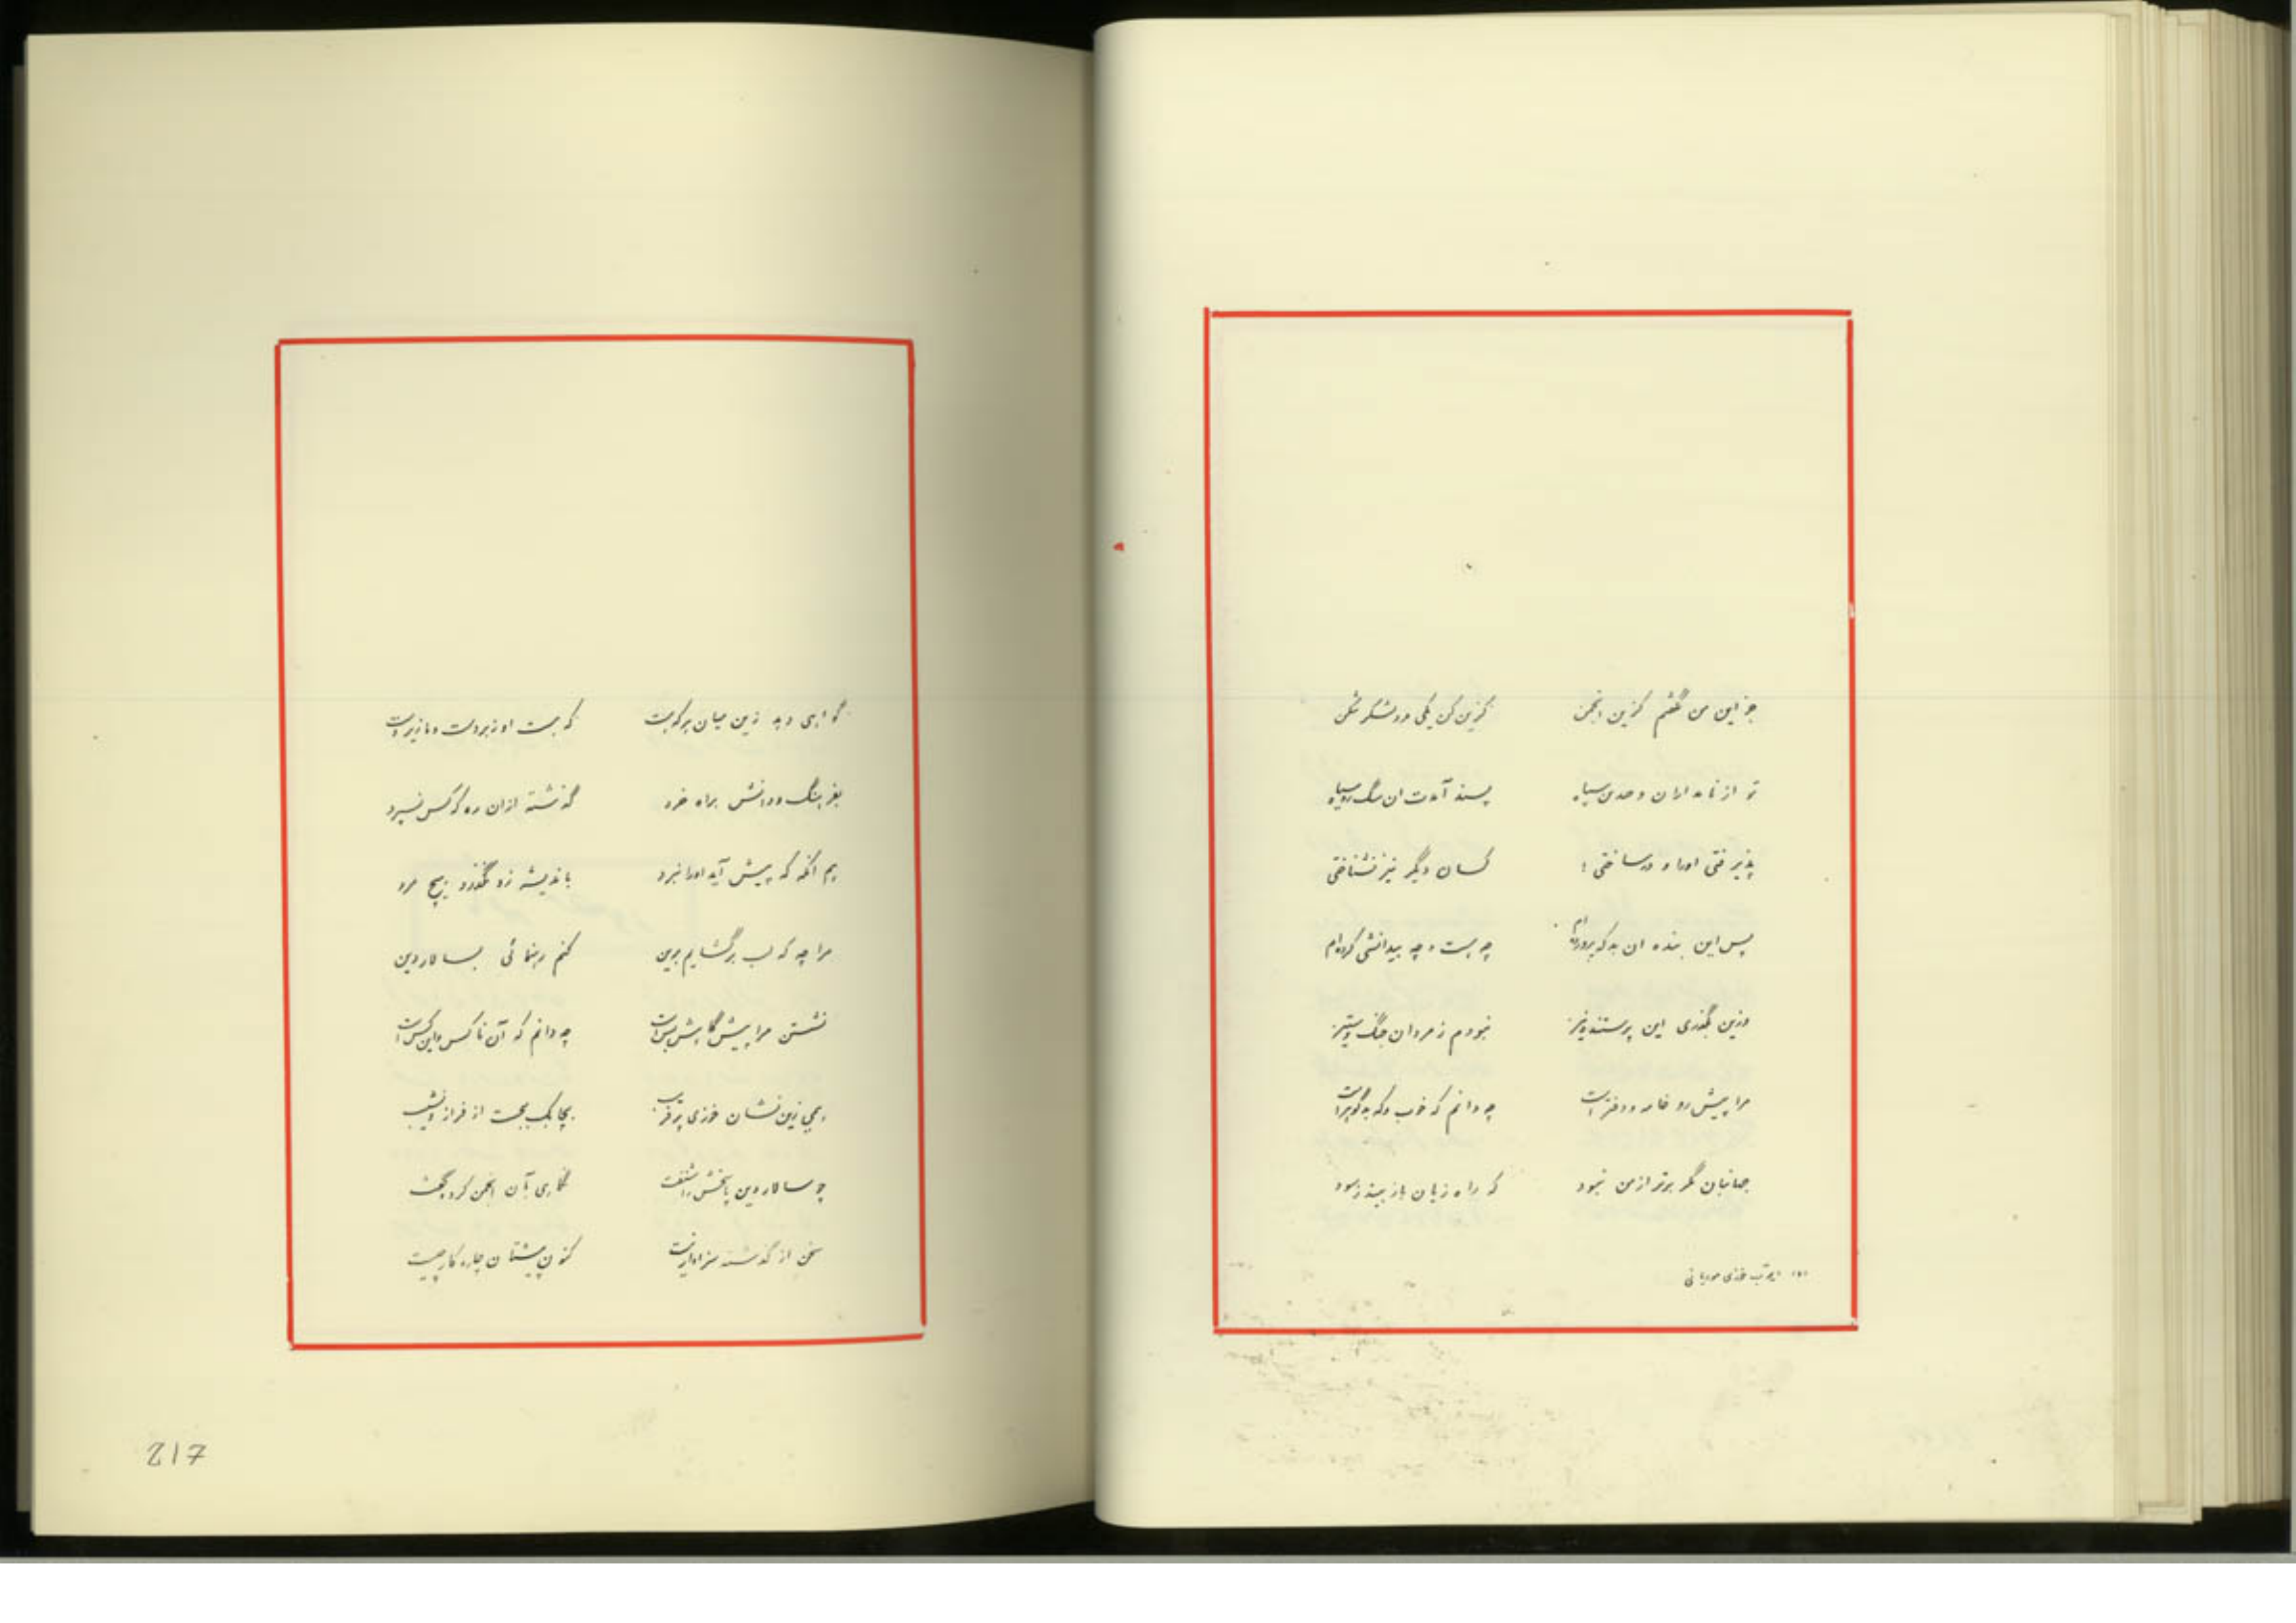 جز این من نگفتم کزین انجمن گزین کن یکی مرد لشگر شکن
تو از نامداران وحدی سپاه پسند آمدت ان سگ روسیاه
پذیرفتی او را و درساختی؛ کسان دیگر نیز نشناختی
پس این بنده ان بد که پرورده‌ام چه بست و چه بیدانشی کرده‌ام
وزین بگذری این پرستنده نیز نبودم ز مردان جنگ و ستیز
مرا پیش رو خامه و دفتر است چه دانم که خوب و که بدگوهر است
جهانبان مگر برتر از من نبود که راه زیان باز بیند ز سود
ایوب خوزی موریانی
گواهی دهد زین میان هر که هست که هست او زبردست و ما زیردست
بفرهنگ و دانش براه خرد گذشته ازان ره که کس نسپرد
هم انگه که پیش آید او را نبرد باندیشه زو نگذرد هیچ مرد
مرا چه که لب برگشایم برین کنم رهنمائی بسالار دین
نشستن مرا پیشگاهش بس است چه دانم که آن ناکس و این کس است
همی زین نشان خوزی پر فریب بچابک بجست از فراز و نشیب
چو سالار دین پاسخش را شنفت نگاری بآن انجمن کرد و گفت
سخن از گذشته سزاوار نیست کنون پیشتان چاره کار چیست
217